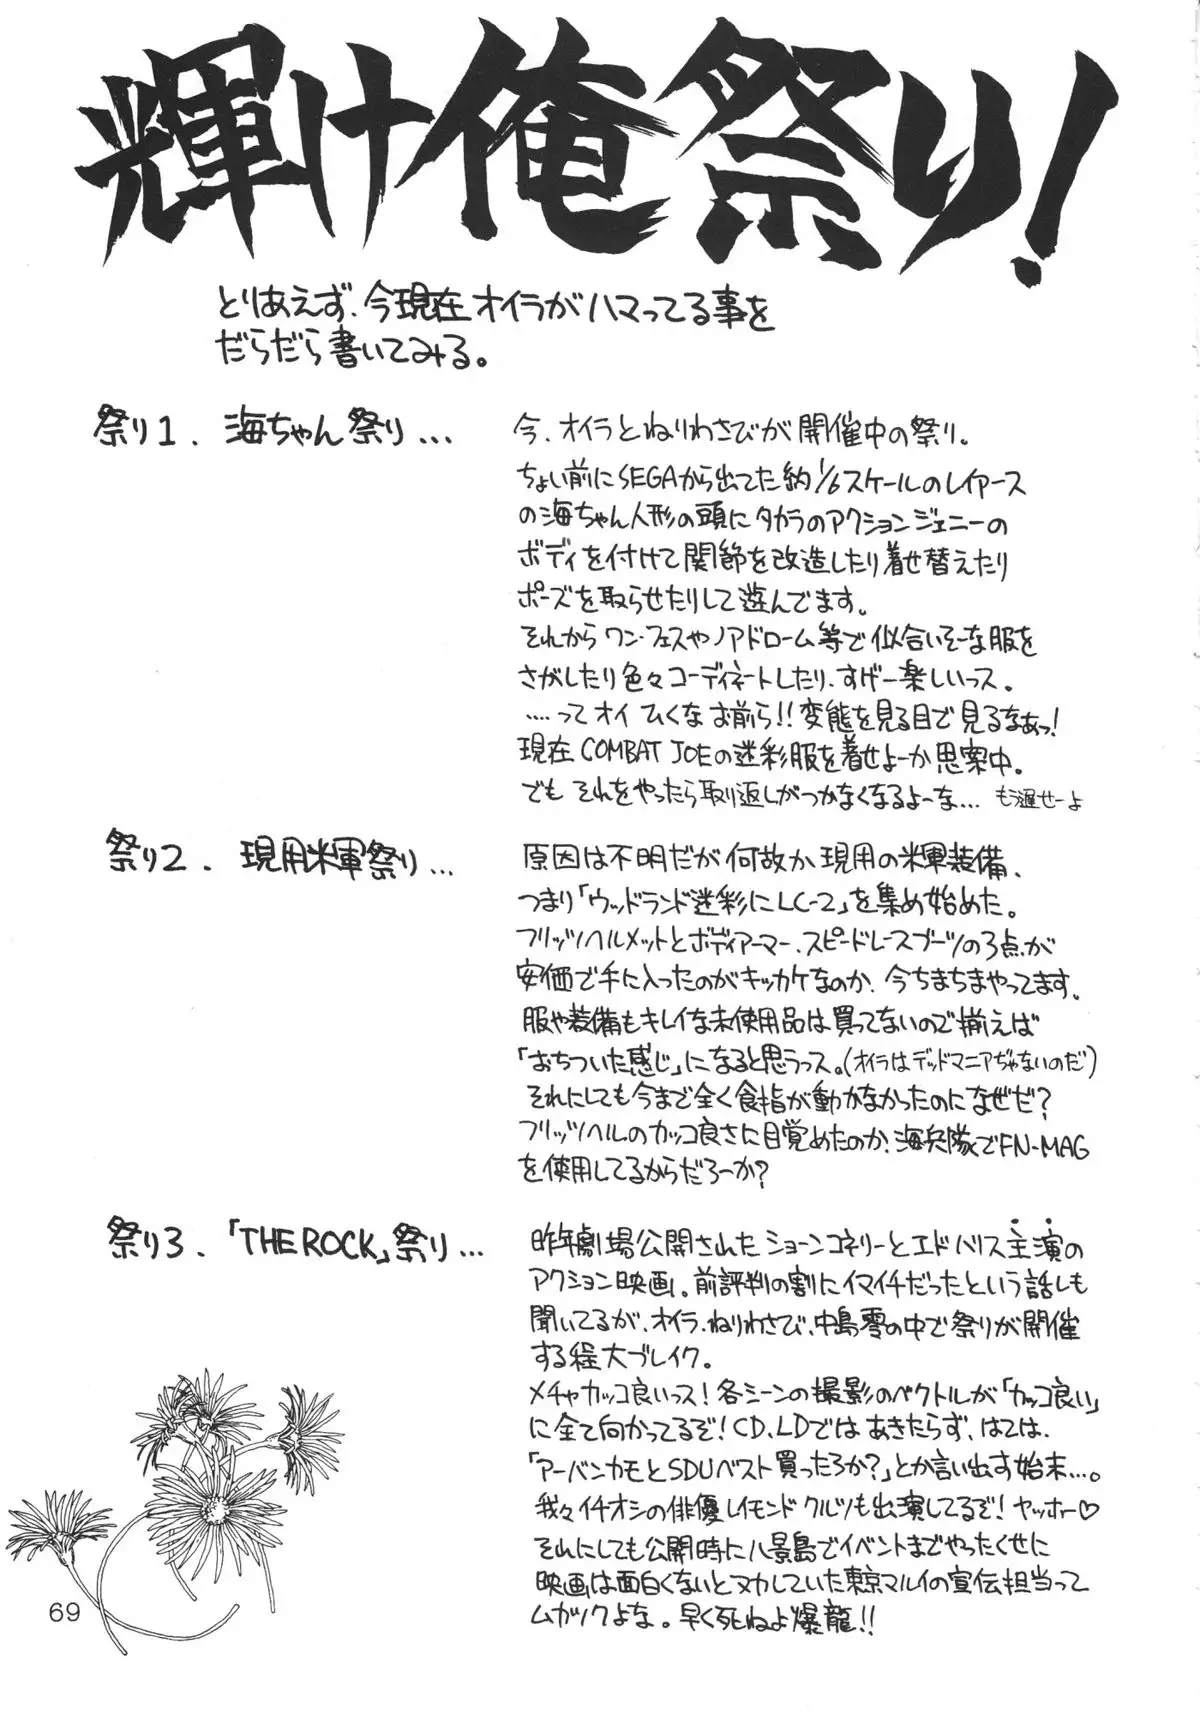 輝け俺祭り!
とりあえず、今現在オイラがハマってる事を
だらだら書いてみる。
祭り1. 海ちゃん祭り...
今、オイラとねりわさびが開催中の祭り。
ちょい前にSEGAから出てた約1/6スケールのレイアース
の海ちゃん人形の頭にタカラのアクションジェニーの
ボディを付けて関節を改造したり着せ替えたり
ポーズを取らせたりして遊んでます。
それからワン・フェスやノアドローム等で似合いそーな服を
さがしたり色々コーディネートしたり、すげー楽しいっス。
....ってオイひくなお前ら!!変態を見る目で見るなぁっ!
現在COMBAT JOEの迷彩服を着せよーか思案中。
でもそれをやったら取り返しがつかなくなるよーな... もう遅せーよ
祭り2. 現用米軍祭り...
原因は不明だが何故か現用の米軍装備、
つまり「ウッドランド迷彩にLC-2」を集め始めた。
フリッツヘルメットとボディアーマー、スピードレースブーツの3点が
安価で手に入ったのがキッカケなのか、今ちまちまやってます。
服や装備もキレイな未使用品は買ってないので揃えば
「おちついた感じ」になると思うっス。(オイラはデッドマニアぢゃないのだ)
それにしても今まで全く食指が動かなかったのになぜだ?
フリッツヘルのカッコ良さに目覚めたのか、海兵隊でFN-MAG
を使用してるからだろーか?
祭り3.「THE ROCK」祭り...
昨年劇場公開されたショーンコネリーとエドハリス主演の
アクション映画。前評判の割にイマイチだったという話しも
聞いてるが、オイラ、ねりわさび、中島零の中で祭りが開催
する程大ブレイク。
メチャカッコ良いっス!各シーンの撮影のベクトルが「カッコ良い」
に全て向かってるぞ!CD、LDではあきたらず、はては、
「アーバンカモとSDUベスト買ったろか?」とか言い出す始末...。
我々イチオシの俳優レイモンドクルツも出演してるぞ!ヤッホー♡
それにしても公開時に八景島でイベントまでやったくせに
映画は面白くないとヌカしていた東京マルイの宣伝担当って
ムカツクよな。早く死ねよ爆龍!!
69